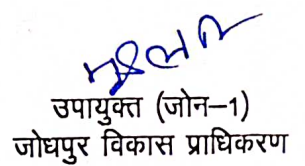 उपायुक्त (जोन–1)
जोधपुर विकास प्राधिकरण